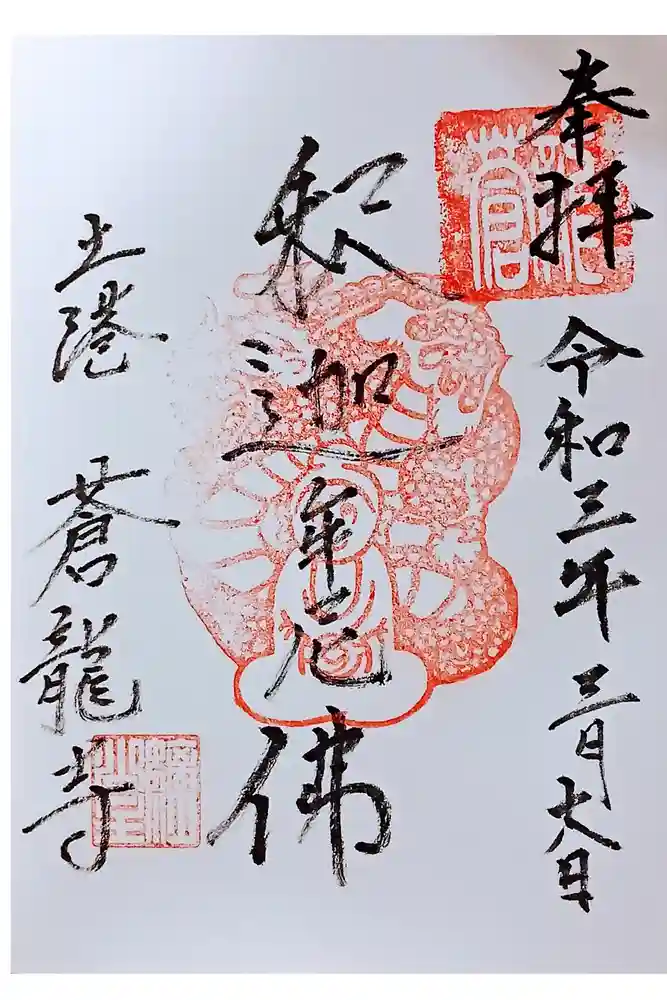 奉拝
令和三年三月六日
釈迦牟尼佛
土港 蒼龍寺